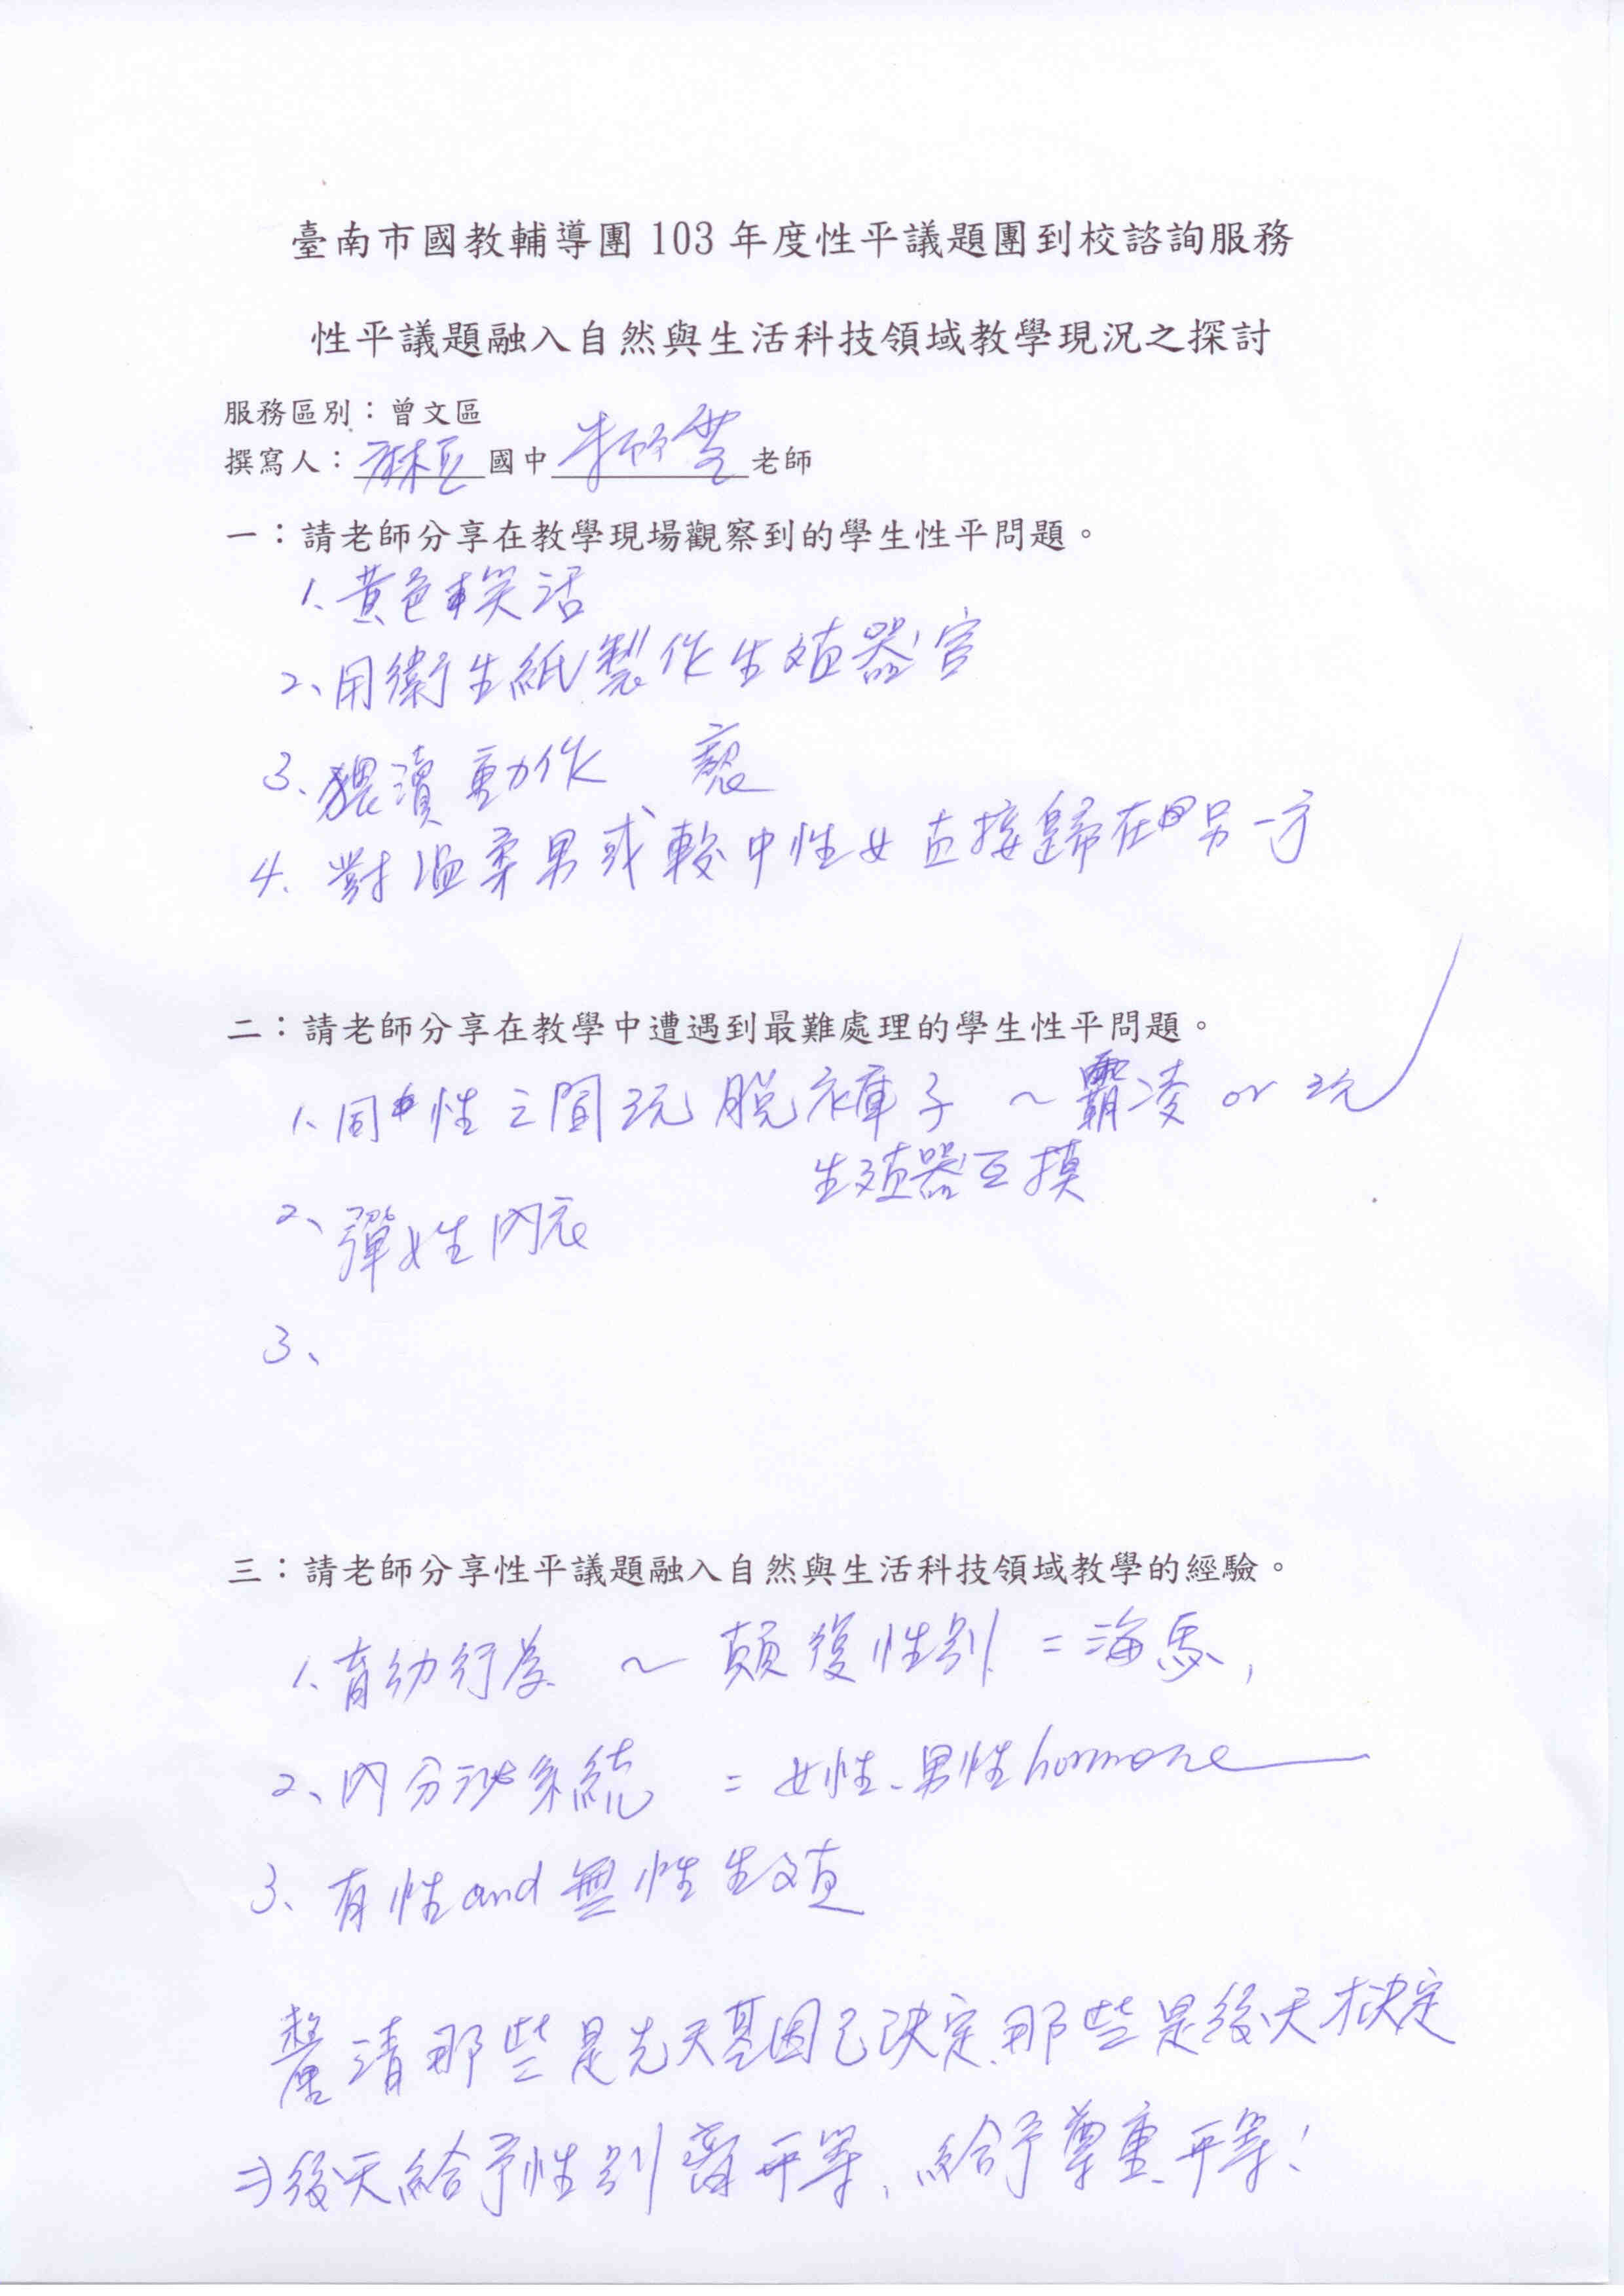 臺南市國教輔導團 103 年度性平議題團到校諮詢服務
性平議題融入自然與生活科技領域教學現況之探討
服務區別：曾文區
撰寫人：麻豆國中 老師
一：請老師分享在教學現場觀察到的學生性平問題。
1、黃色笑話
2、用衛生紙製作生殖器官
3、猥瀆動作 褻
4. 對溫柔男或較中性女直接歸在另一方
二：請老師分享在教學中遭遇到最難處理的學生性平問題。
1、同性之間玩脫褲子 ~ 霸凌 or 玩
生殖器互摸
2、彈女生內衣
3、
三：請老師分享性平議題融入自然與生活科技領域教學的經驗。
1、育幼行為 ~ 顛復性別 = 海馬,
2、內分泌系統 = 女性、男性hormone
3、有性and無性生殖
釐清那些是先天基因已決定、那些是後天才決定
⇒後天給予性別 平等, 給予尊重、平等!